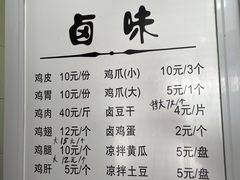 卤味
鸡皮 10元/份 鸡爪(小) 10元/3个
鸡胃 10元/份 鸡爪(大) 5元/1个
特大7元/个
鸡肉 40元/斤 卤豆干 4元/片
鸡翅 12元/个 卤鸡蛋 2元/个
大15元/个
鸡腿 10元/个 凉拌黄瓜 5元/盘
大12元/个
鸡肝 5元/份 凉拌土豆 5元/盘